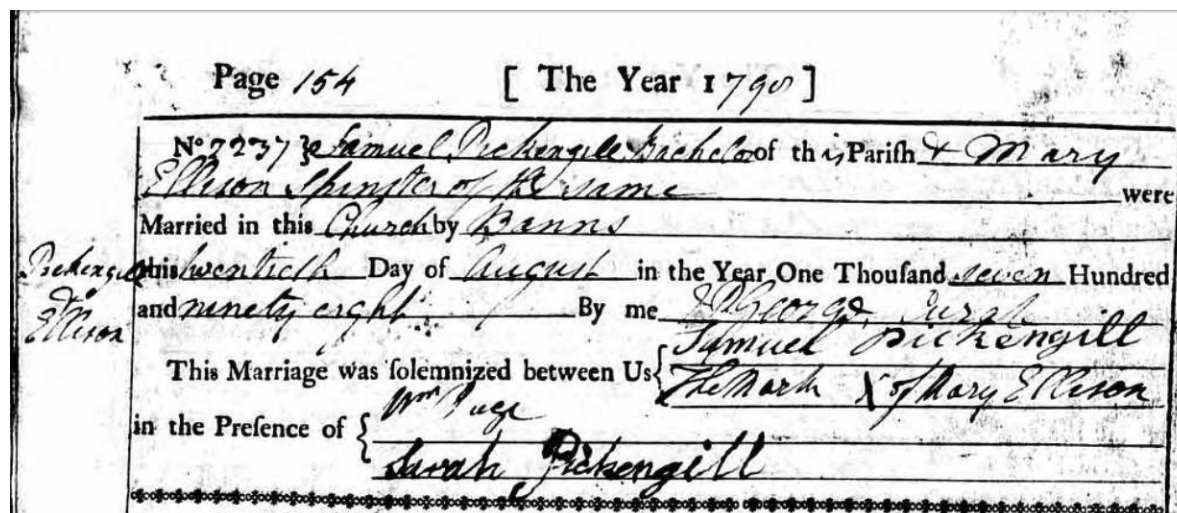 Page 154 [ The Year 1798 ]
No 2237 } Samuel Pickengill Bachelor of this Parish & Mary
Ellison Spinster of the same were
Married in this Church by Banns
this twentieth Day of August in the Year One Thouſand seven Hundred
Pickengill
&
Ellison
and ninety eight By me George, Curat
This Marriage was ſolemnized between Us { Samuel Pickengill
The Mark X of Mary Ellison
in the Preſence of { Wm Page
Sarah Pickengill